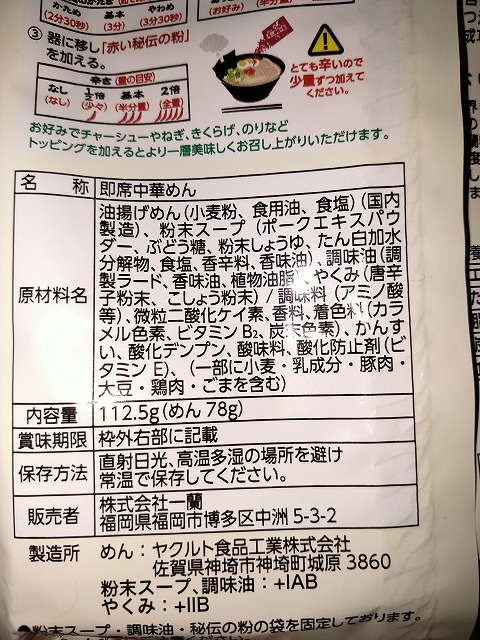 かため 基本 やわめ
(2分30秒) (3分) (3分30秒)
(お好み)
③ 器に移し「赤い秘伝の粉」
を加える。
辛さ(量の目安)
なし 1/2倍 基本 2倍
(なし) (少々) (半分量) (全量)
とても辛いので
少量ずつ加えて
ください。
お好みでチャーシューやねぎ、きくらげ、のりなど
トッピングを加えるとより一層美味しくお召し上がりいただけます。
名 称 即席中華めん
原材料名
油揚げめん(小麦粉、食用油、食塩)(国内
製造)、粉末スープ(ポークエキスパウ
ダー、ぶどう糖、粉末しょうゆ、たん白加水
分解物、食塩、香辛料、香味油)、調味油(調
製ラード、香味油、植物油脂)、やくみ(唐辛
子粉末、こしょう粉末)/調味料(アミノ酸
等)、微粒二酸化ケイ素、香料、着色料(カラ
メル色素、ビタミンB₂、炭末色素)、かんす
い、酸化デンプン、酸味料、酸化防止剤(ビ
タミンE)、(一部に小麦・乳成分・豚肉・
大豆・鶏肉・ごまを含む)
内容量 112.5g(めん 78g)
賞味期限 枠外右部に記載
保存方法 直射日光、高温多湿の場所を避け
常温で保存してください。
販売者 株式会社一蘭
福岡県福岡市博多区中洲 5-3-2
製造所 めん:ヤクルト食品工業株式会社
佐賀県神埼市神埼町城原 3860
粉末スープ、調味油:+IAB
やくみ:+IIB
●粉末スープ・調味油・秘伝の粉の袋を固定しております。